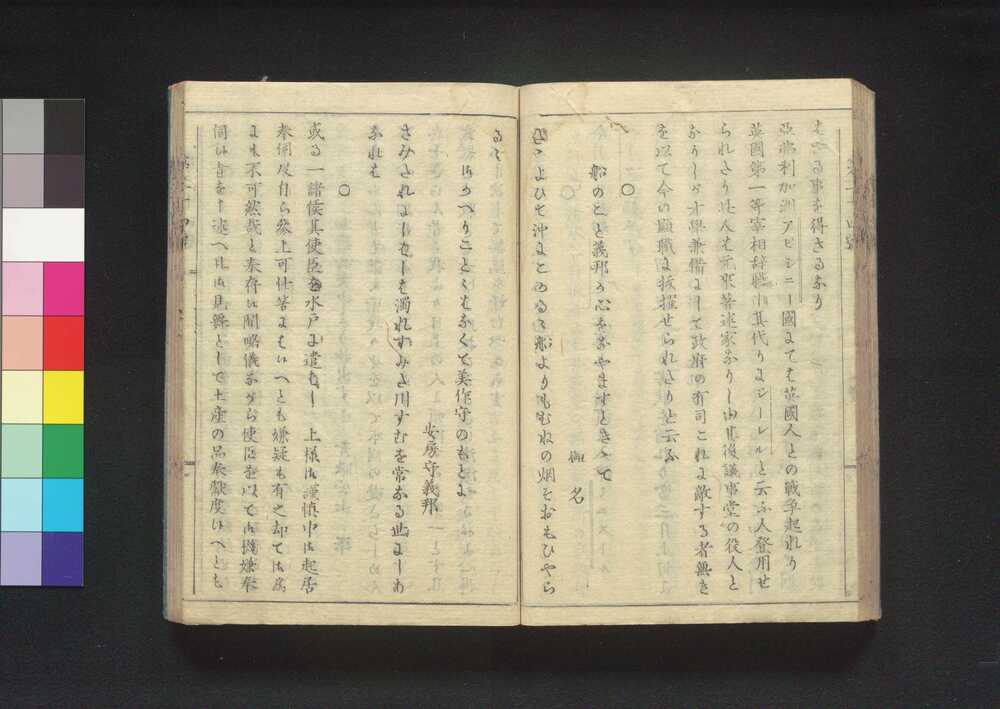 せざる事を得さるなり
亞弗利加洲アビシニー國にても英國人との戦争起れり
英國第一等宰相辞職小其代りはジーレルと云ふ人登用せ
られたり此人も元来著述家なりし由其後議事堂の役人と
なりしが才學兼備にして政府の有司これに敵する者無き
を以て今の顕職に抜擢せられたりと云ふ
○
船のこと義邦の心をなやますとききて
無名
さよひそ沖にとのるる船よりもむねの烟をおもひやら
るる
はかへりことくもなくて美作守のもとよ
安房守義邦
さみたれにしはしも濁れすみた川すむを常なる世にしあ
なれは
○
或る一諸侯其使臣を水戸に遣はし 上様は謹慎中は起居
奉伺度自ら参上可仕筈にもいへとも嫌疑も有之却ては為
にも不可然哉と奉存は間略儀なから使臣を以ては機嫌奉
伺は旨を申述へは馬縣として土産の品奉献度いへとも